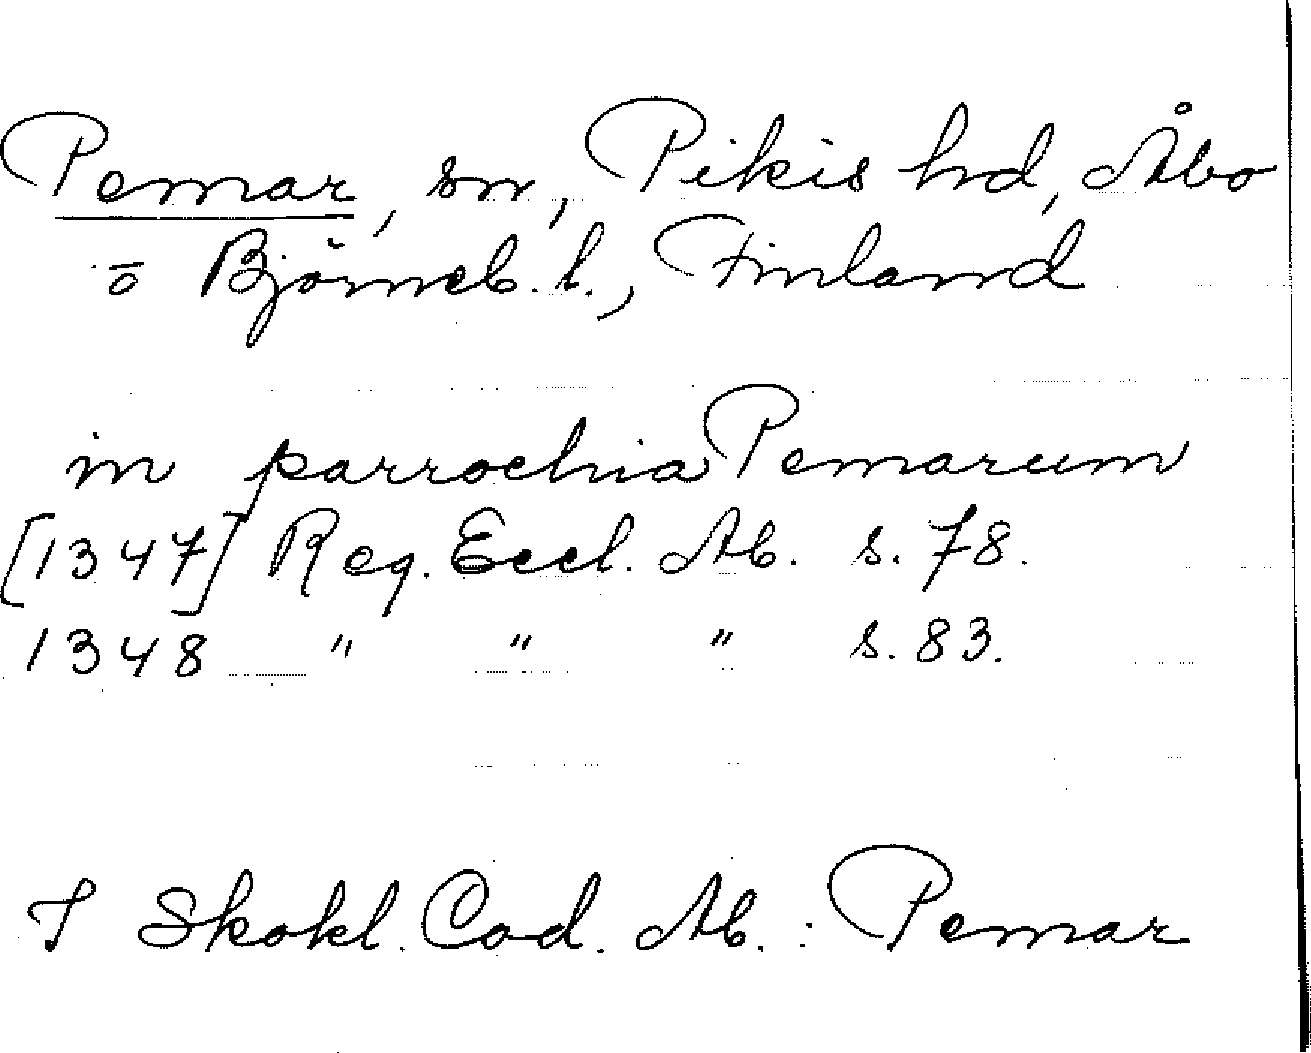 Pemar, sn, Pikis hd, Åbo
o Björneb. l., Finland
in parrochia Pemarum
[1347] Reg. Eccl. Ab. s. 78.
1348 " " " s. 83.
I Skokl. Cod. Ab. : Pemar